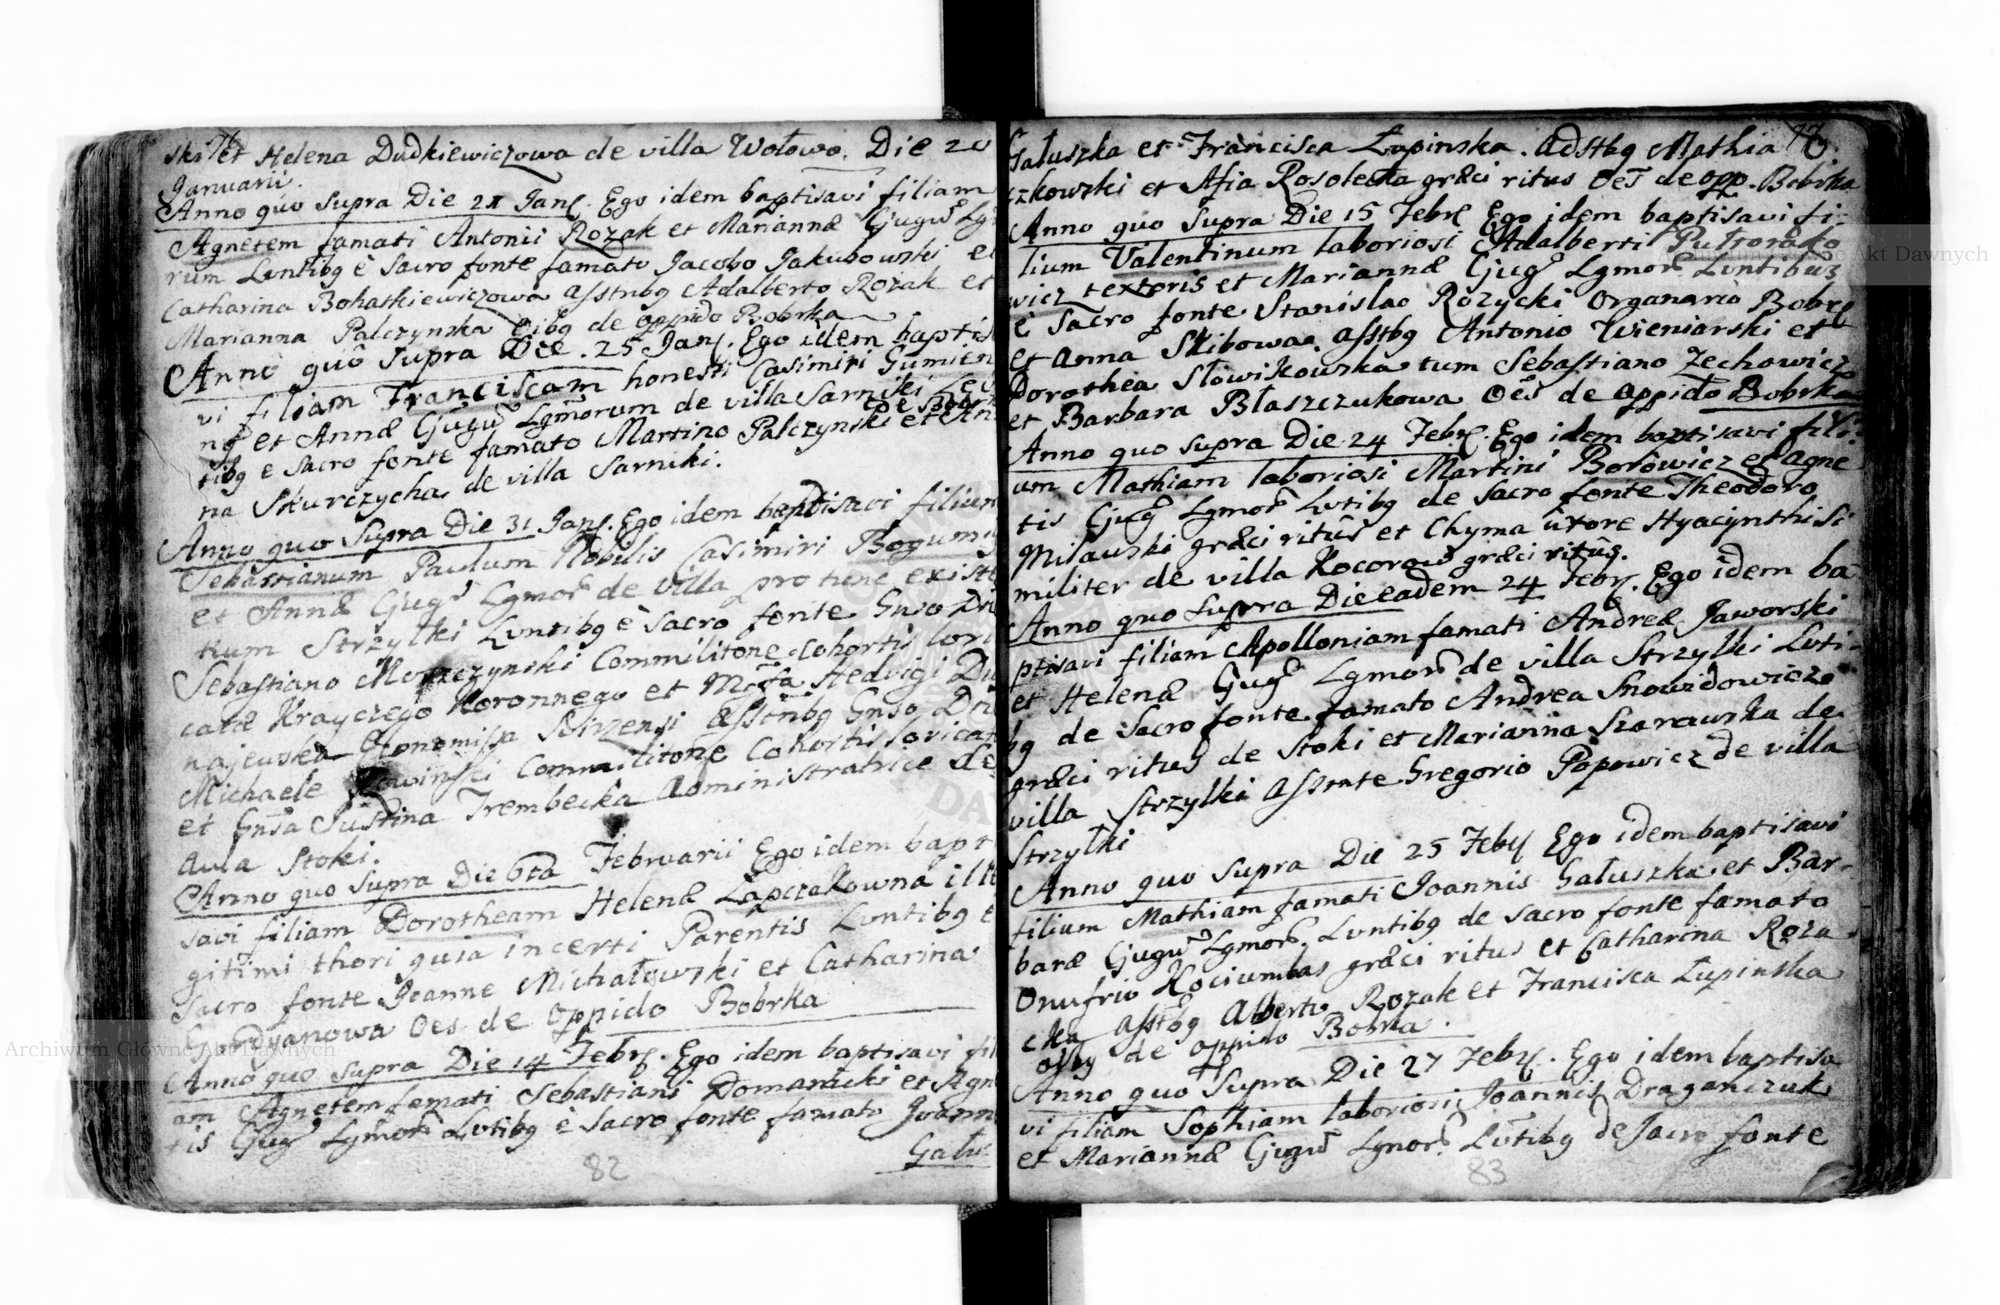 ski et Helena Dudkiewiczowa de villa Wołowo. Die 20
Januarii.
Anno quo supra Die 21 Janr. Ego idem baptisavi filiam
Agnetem famati Antonii Rozak et Mariannæ Cjugu Lg
rum Lvntibg è sacro fonte famato Jacobo Jakubowski et
Catharina Bohatkiewiczowa asstnbg Adalberto Rozak et
Marianna Palczynska oibg de oppido Bobrka
Anno quo supra Die 25 Janr. Ego idem baptis
vi filiam Franciscam honesti Casimiri Gumien
et Annæ Cjugu Lgmorum de villa Sarniki Lev
tibg e sacro fonte famato Martino Palczynski et An
na Skurczycha de villa Sarniki.
Anno quo supra Die 31 Janr. Ego idem baptisavi filium
Sebastianum Paulum Nobilis Casimiri Bogum
et Annæ Cjugu Lgmor de villa pro tunc existe
tium Strzylki Lvntibg è sacro fonte Gnso Dno
Sebastiano Commilitone cohortis lori
catæ Krayczego Koronnego et Hedvigi Du
najewska Oconomissa asstnbg Gnso Dno
Michaele Commilitone Cohortis loricat
et Gnsa Justina Trembecka Administratrice de
Aula Stoki.
Anno quo supra Die 6ta Februarii Ego idem bapt
savi filiam Dorotheam Helenæ Łapczakowna ille
gitimi thori quia incerti Parentis Lvntibg e
sacro fonte Joanne Michałowski et Catharina
Gordyanowa oes de oppido Bobrka
Anno quo supra Die 14 Febr. Ego idem baptisavi fil
am Agnetem famati Sebastiani Domaracki et Agn
tis Cjugu Lgmor Lvtibg è sacro fonte famato Joann
Gałus
82
Gałuszka et Francisca Łapinska. Adstbg Mathia
czkowski et Afia Rosolecka græci ritus oes de opp. Bobrka
Anno quo supra Die 15 Febr Ego idem baptisavi fi-
lium Valentinum laboriosi Adalberti
wicz textoris et Mariannæ Cjugu Lgmor Lvntibus
è sacro fonte Stanislao Rozycki Organario Bobre
et Anna Skibowa asstbg Antonio Winiarski et
Dorothea Słowikowska tum Sebastiano Zechowicz
et Barbara Błaszczukowa oes de oppido Bobrka
Anno quo supra Die 24 Febr. Ego idem baptisavi fili-
um Mathiam laboriosi Martini Borowicz et Agne
tis Cjugu Lgmor Lvtibg de sacro fonte Theodoro
Milawski græci ritus et Chyma uxore Hyacynthi Si
militer de villa Kocorow græci ritus.
Anno quo supra Die eadem 24 Febr. Ego idem ba
ptisavi filiam Apolloniam famati Andreæ Jaworski
et Helenæ Cjugu Lgmor de villa Strzylki Lvti-
bg de sacro fonte famato Andrea Snowidowicz
græci ritus de Stoki et Marianna Szarawska de
villa Strzylki asstnte Gregorio Popowicz de villa
Strzylki
Anno quo supra Die 25 Febr Ego idem baptisavi
filium Mathiam famati Joannis Gałuszka et Bar-
baræ Cjugu Lgmor. Lvntibg de sacro fonte famato
Onufrio Kociumbas græci ritus et Catharina Roza
cka asstbg Alberto Rozak et Francisca Łupinska
oibg de oppido Bobrka.
Anno quo supra Die 27 Febr. Ego idem baptisa
vi filiam Sophiam laboriosi Joannis Draganczuk
et Mariannæ Cjugu Lgmor Lvtibg de sacro fonte
83
Archiwum Główne Akt Dawnych
Archiwum Główne Akt Dawnych